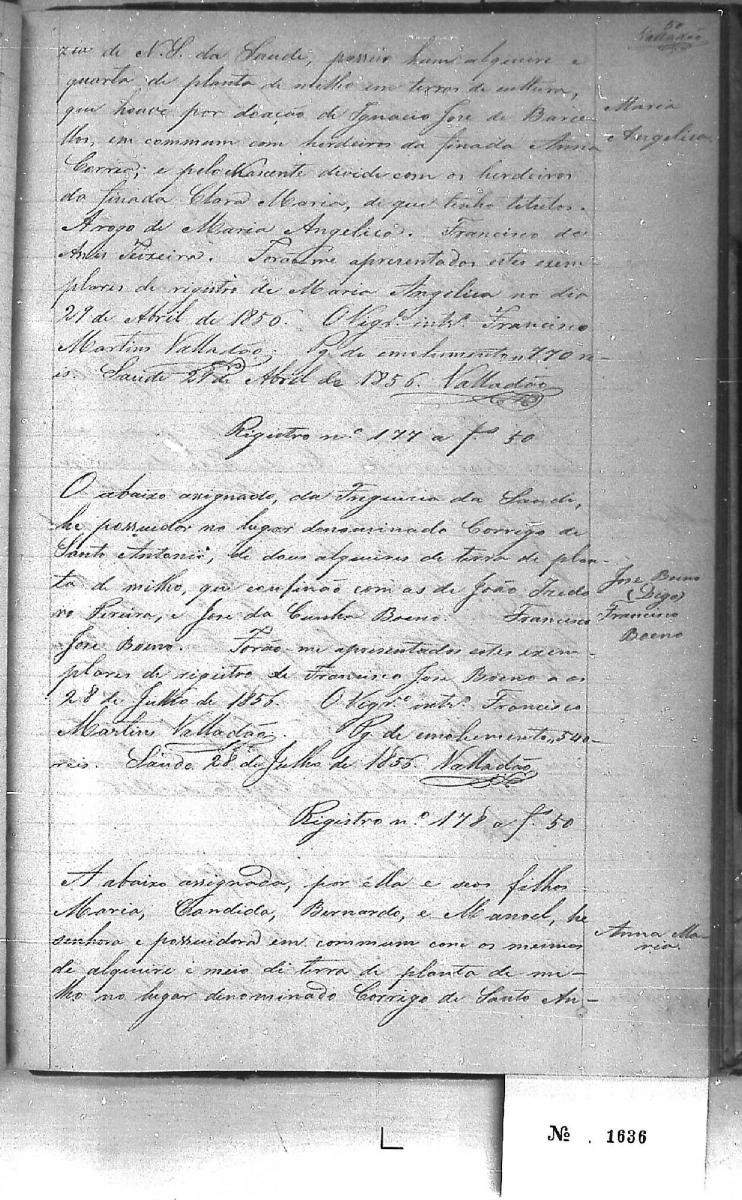 50
Valladão
zia de N. S. da Saude, possuo hum alqueire e
quarta de planta de milho em terras de cultura,
que houve por doação de Ignacio Jose de Barce-
llos, em commum com herdeiros da finada Anna
Correa; e pelo Nascente divide com os herdeiros
da finada Clara Maria, de que tenho titulos.
Arogo de Maria Angelica. Francisco de
Assis Teixeira. Forão me apresentados estes exem-
plares de registro de Maria Angelica no dia
29 de Abril de 1856. O Vigrº. intº. Francisco
Martins Valladão. Pg. de emolumentos 770 r
is. Saude 29 de Abril de 1856. Valladão
Maria
Angelica.
Registro nº 177 a fs 50
O abaixo assignado, da Freguezia da Saude,
he possuidor no lugar denominado Corrigo de
Santo Antonio, de dous alqueires de terra de plan-
ta de milho, que confinão com as de João Theodo
ro Pereira, e Jose da Cunha Boeno. Francisco
Jose Boeno. Forão-me apresentados estes exem-
plares de registro de Francisco Jose Boeno a os
28 de Julho de 1856. O Vigrº. intº. Francisco
Martins Valladão. Pg. de emolumentos 540-
reis. Saude 28 de Julho de 1856. Valladão
Jose Boeno
(Digo)
Francisco
Boeno
Registro nº 178 a fs 50
A abaixo assignada, por ella e seos filhos
Maria, Candida, Bernardo, e Manoel, he
senhora e possuidora em commum com os mesmos
de alqueire e meio de terra de planta de mi-
lho no lugar denominado Corrigo de Santo An-
Anna Ma-
ria.
Nº . 1636